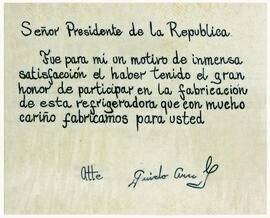 Señor Presidente de la Republica.
Fue para mi un motivo de inmensa
satisfacción el haber tenido el gran
honor de participar en la fabricación
de esta refrigeradora que con mucho
cariño fabricamos para usted
Atte